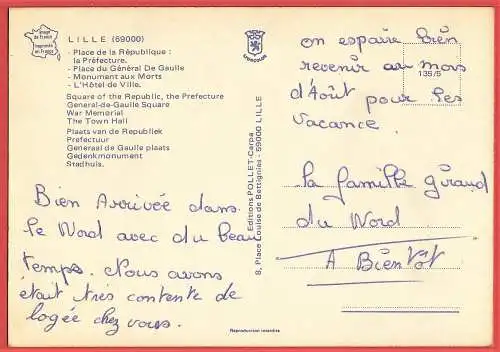 Image de France
Imprimée en France
LILLE (59000)
- Place de la République :
la Préfecture.
- Place du Général De Gaulle
- Monument aux Morts
- L'Hôtel de Ville.
Square of the Republic, the Prefecture
General-de-Gaulle Square
War Memorial
The Town Hall
Plaats van de Republiek
Prefectuur
Generaal de Gaulle plaats
Gedenkmonument
Stadhuis.
Bien Arrivée dans
le Nord avec du beau
temps. Nous avons
était très contente de
logée chez vous.
Editions POLLET-Carpa
8, Place Louise de Bettignies - 59000 LILLE
Reproduction interdite
135/5
on espaire bien
revenir au mois
d'Août pour les
vacance.
la famille giraud
du Nord
A Bientôt